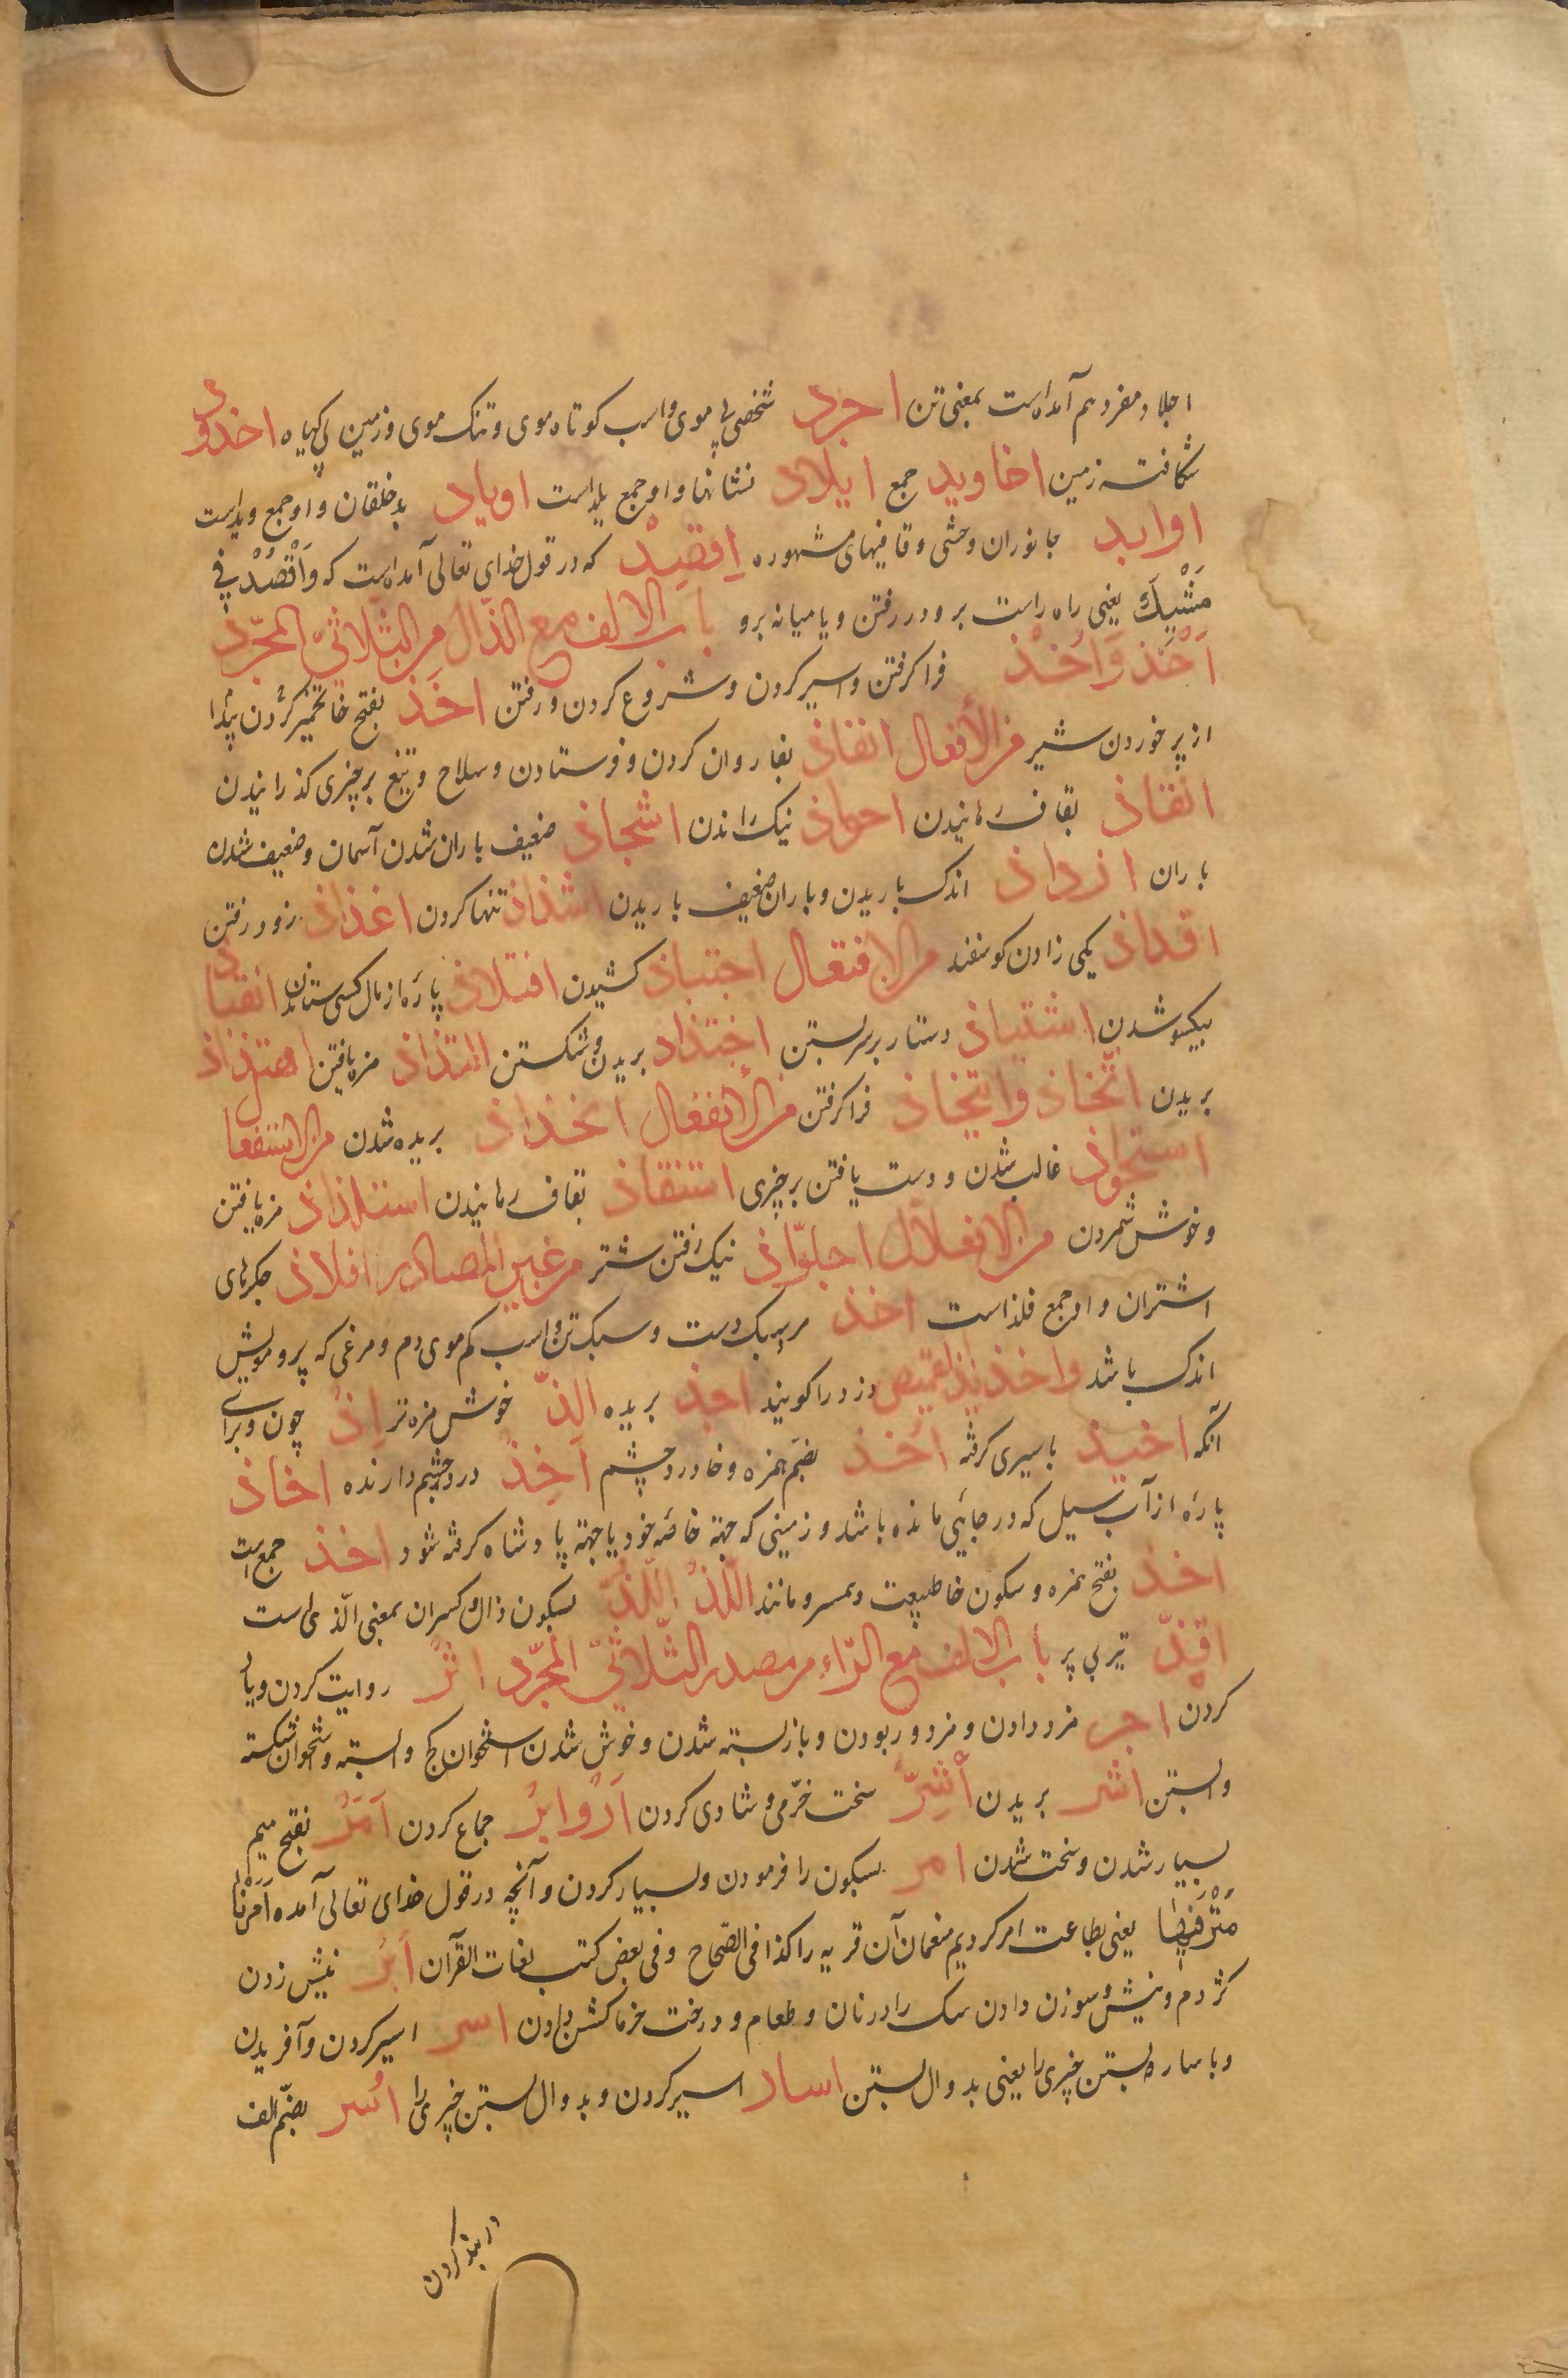 اجلاد مفرد هم آمده است بمعنی تن اجرد شخصی بی موی و اسب کوتاه موی و تنک موی و زمین بی کیاه اخدود
شکافت زمین اخادید جمع ایلاد نشانها و او جمع بلد است اوباد بد خلقان و او جمع وبد است
اوابد جانوران وحشی و قافیهای مشهوره اِقصِدْ که در قول خدای تعالی آمده است که وَاَقْصُدْ فی
مَشْیِكَ یعنی راه راست برو در رفتن و یا میانه برو باب الالف مع الذّال من الثّلاثیّ المجرّد
اَخذ وَاُخذ فرا کرفتن و اسیر کردن و شروع کردن و رفتن اخَذ بفتح خا تخمیر کردن پیدا
از پر خوردن شیر من الأفعال انفاذ بفا روان کردن و فرستادن و سلاح و تیغ بر چیزی کذرانیدن
انقاذ بقاف رهانیدن احواذ نیک راندن اشجاذ ضعیف باران شدن آسمان و ضعیف شدن
باران ارذاذ اندک باریدن و باران ضعیف باریدن اشذاذ تنها کردن اغذاذ زود رفتن
اقذاذ یکی زادن کوسفند من الافتعال اجتباذ کشیدن افتلاذ پاره از مال کسی ستاندن انتباذ
بیکسو شدن اشتباذ دستار بر سر بستن اجتذاذ بریدن و شکستن التذاذ مزه یافتن اهتذاذ
بریدن اتّخاذ وایتخاذ فرا کرفتن من الأنفعال انخذاذ بریده شدن من الاستفعال
استحواذ غالب شدن و دست یافتن بر چیزی استنقاذ بقاف رهانیدن استلذاذ مزه یافتن
و خوش شمردن من الافعلّال اجلوّاذ نیک رفتن شتر من غیر المصادر افلاذ جکرهای
اشتران و او جمع فلذ است احذ مرد سبک دست و سبک تن و اسب کم موی دم و مرغی که پر و مویش
اندک باشد واحذ یذ القمیص دزد را کویند اجذ بریده الذّ خوش مزه تر اِذ چون و برای
آنکه اخیذ باسیری کرفته اُخُذ بضمّ همزه و خا درد چشم اَخِذ درد چشم دارنده اخاذ
پاره از آب سیل که در جائی مانده باشد و زمینی که جهة خاصّه خود یا جهة پادشاه کرفته شود اخذ جمع است
اخذ بفتح همزه و سکون خا طبیعت و همسر و مانند اللّذْ اللّذِ بسکون ذال و کسر ان بمعنی الّذی است
اقذّ تیر بی پر باب الالف مع الرّاء من مصدر الثّلاثیّ المجرّد اثر روایت کردن و یاد
کردن اجر مزد دادن و مزدور بودن و باز بسته شدن و خوش شدن استخوان کج و بسته و استخوان شکسته
و بستن اشر بریدن أشِرّ سخت خرّمی و شادی کردن اَرّ وایر جماع کردن اَمَر بفتح میم
بسیار شدن و سخت شدن امر بسکون را فرمودن و بسیار کردن و آنچه در قول خدای تعالی آمده اَمَرْنَا
مُتْرَفِیهَا یعنی بطاعت امر کردیم منعمان آن قریه را کذا فی الصّحاح و فی بعض کتب لغات القرآن اَبر نیش زدن
کژدم و نیش و سوزن دادن سک را در نان و طعام و درخت خرما کشن دادن اسر اسیر کردن و آفریدن
و باساره بستن چیزی را یعنی بدوال بستن اسار اسیر کردن و بدوال بستن چیزی را اُسر بضمّ الف
در بند کردن